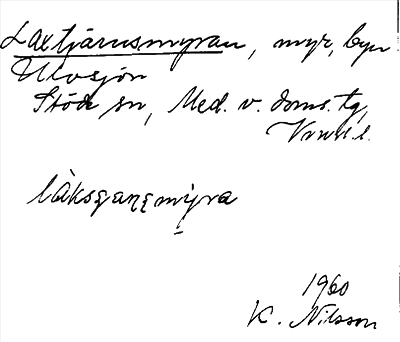 Laxtjärnsmyran, myr, byn
Ulvsjön
Stöde sn, Med. v. doms. tg,
Vrnl. l.
làksęaņęmỳra
1960
K. Nilsson